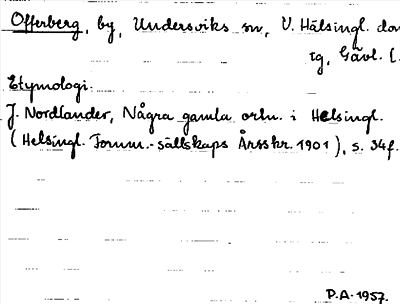 Offerberg, by, Undersviks sn, V. Hälsingl. dom
tg, Gävl. l.
Etymologi:
J. Nordlander, Några gamla ortn. i Helsingl.
(Helsingl. Fornm.-sällskaps Årsskr. 1901), s. 34f.
P.A. 1957.